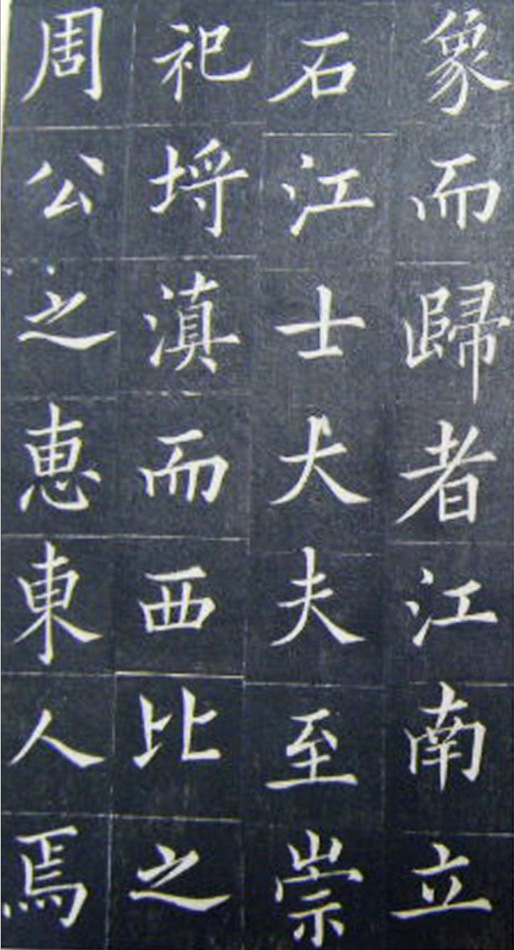 象而歸者江南立
石江士大夫至崇
祀埒滇而西比之
周公之恵東人焉